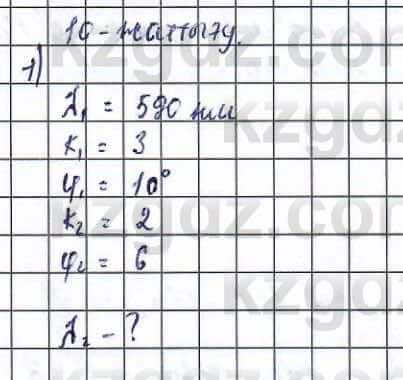 10-жаттығу.
1)
λ₁ = 590 нм
k₁ = 3
φ₁ = 10°
k₂ = 2
φ₂ = 6
λ₂ - ?
kzgdz.com
kzgdz
kzgdz